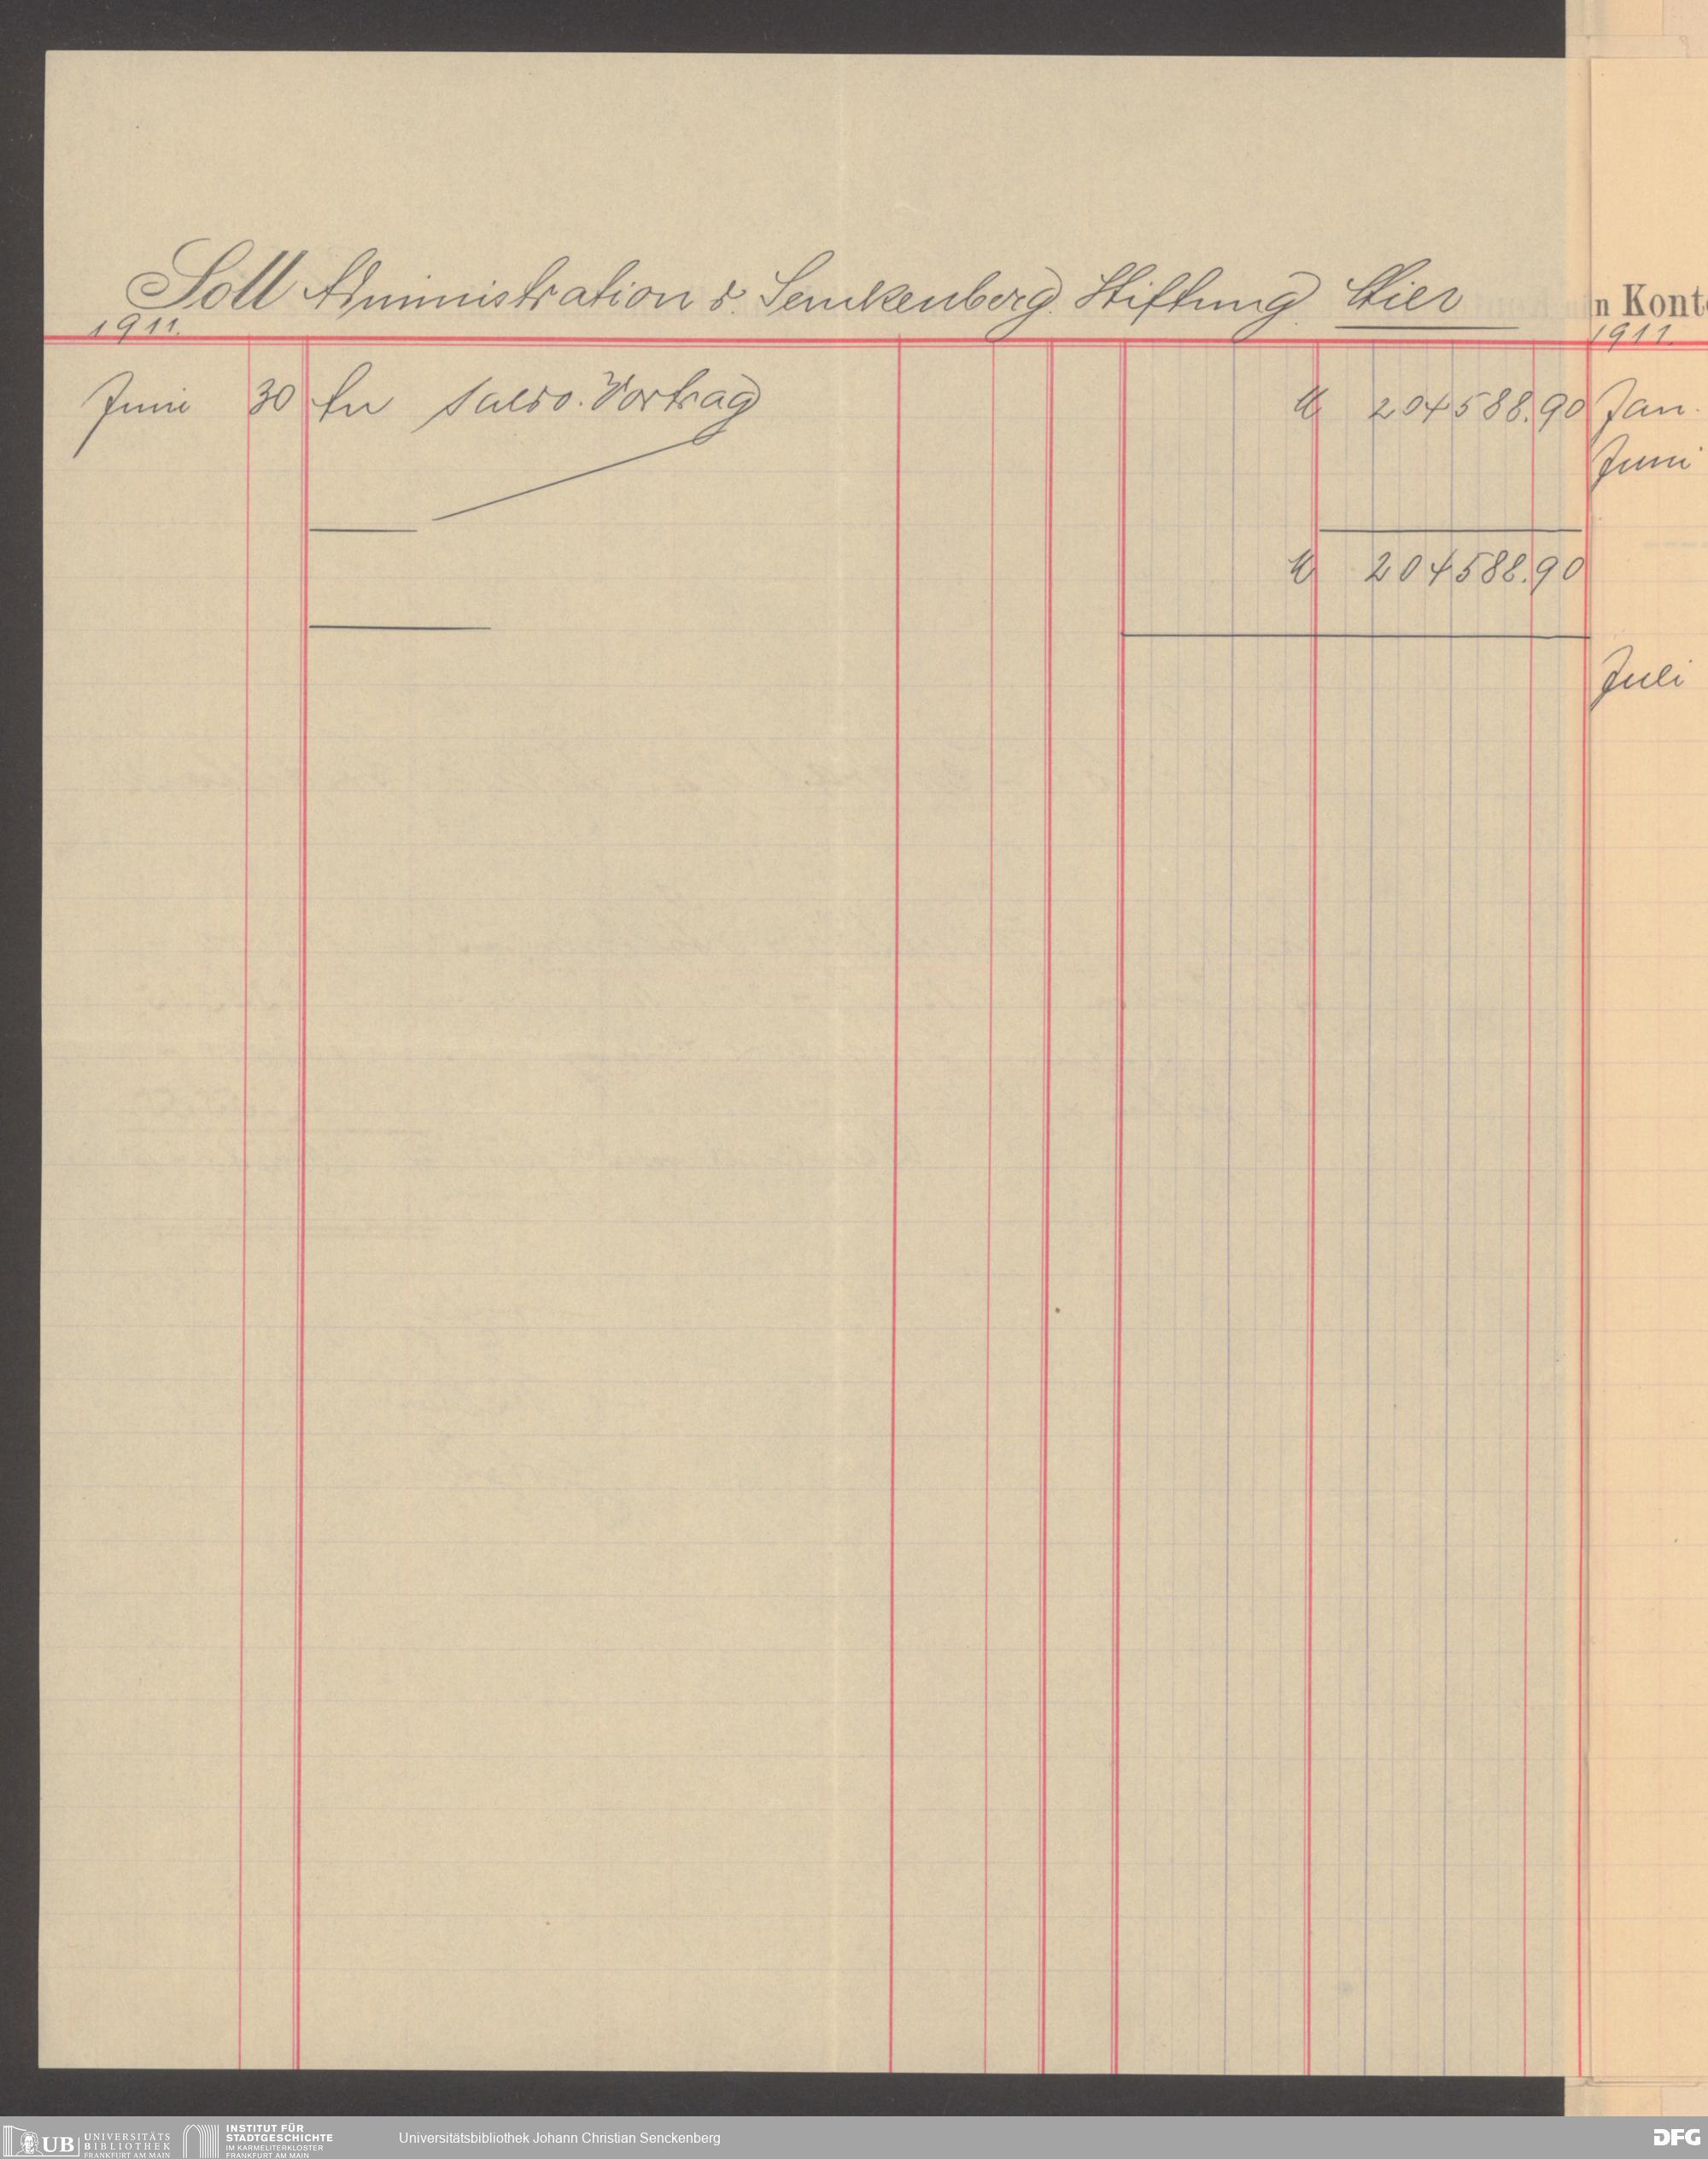 Soll Administration d. Senckenberg. Stiftung Hier
n Konto
1911.
1911.
Juni 30 An Saldo-Vortrag M 204588.90
Jan.
Juni
M 204588.90
Juli
UB UNIVERSITÄTS
BIBLIOTHEK
FRANKFURT AM MAIN
INSTITUT FÜR
STADTGESCHICHTE
IM KARMELITERKLOSTER
FRANKFURT AM MAIN
Universitätsbibliothek Johann Christian Senckenberg
DFG